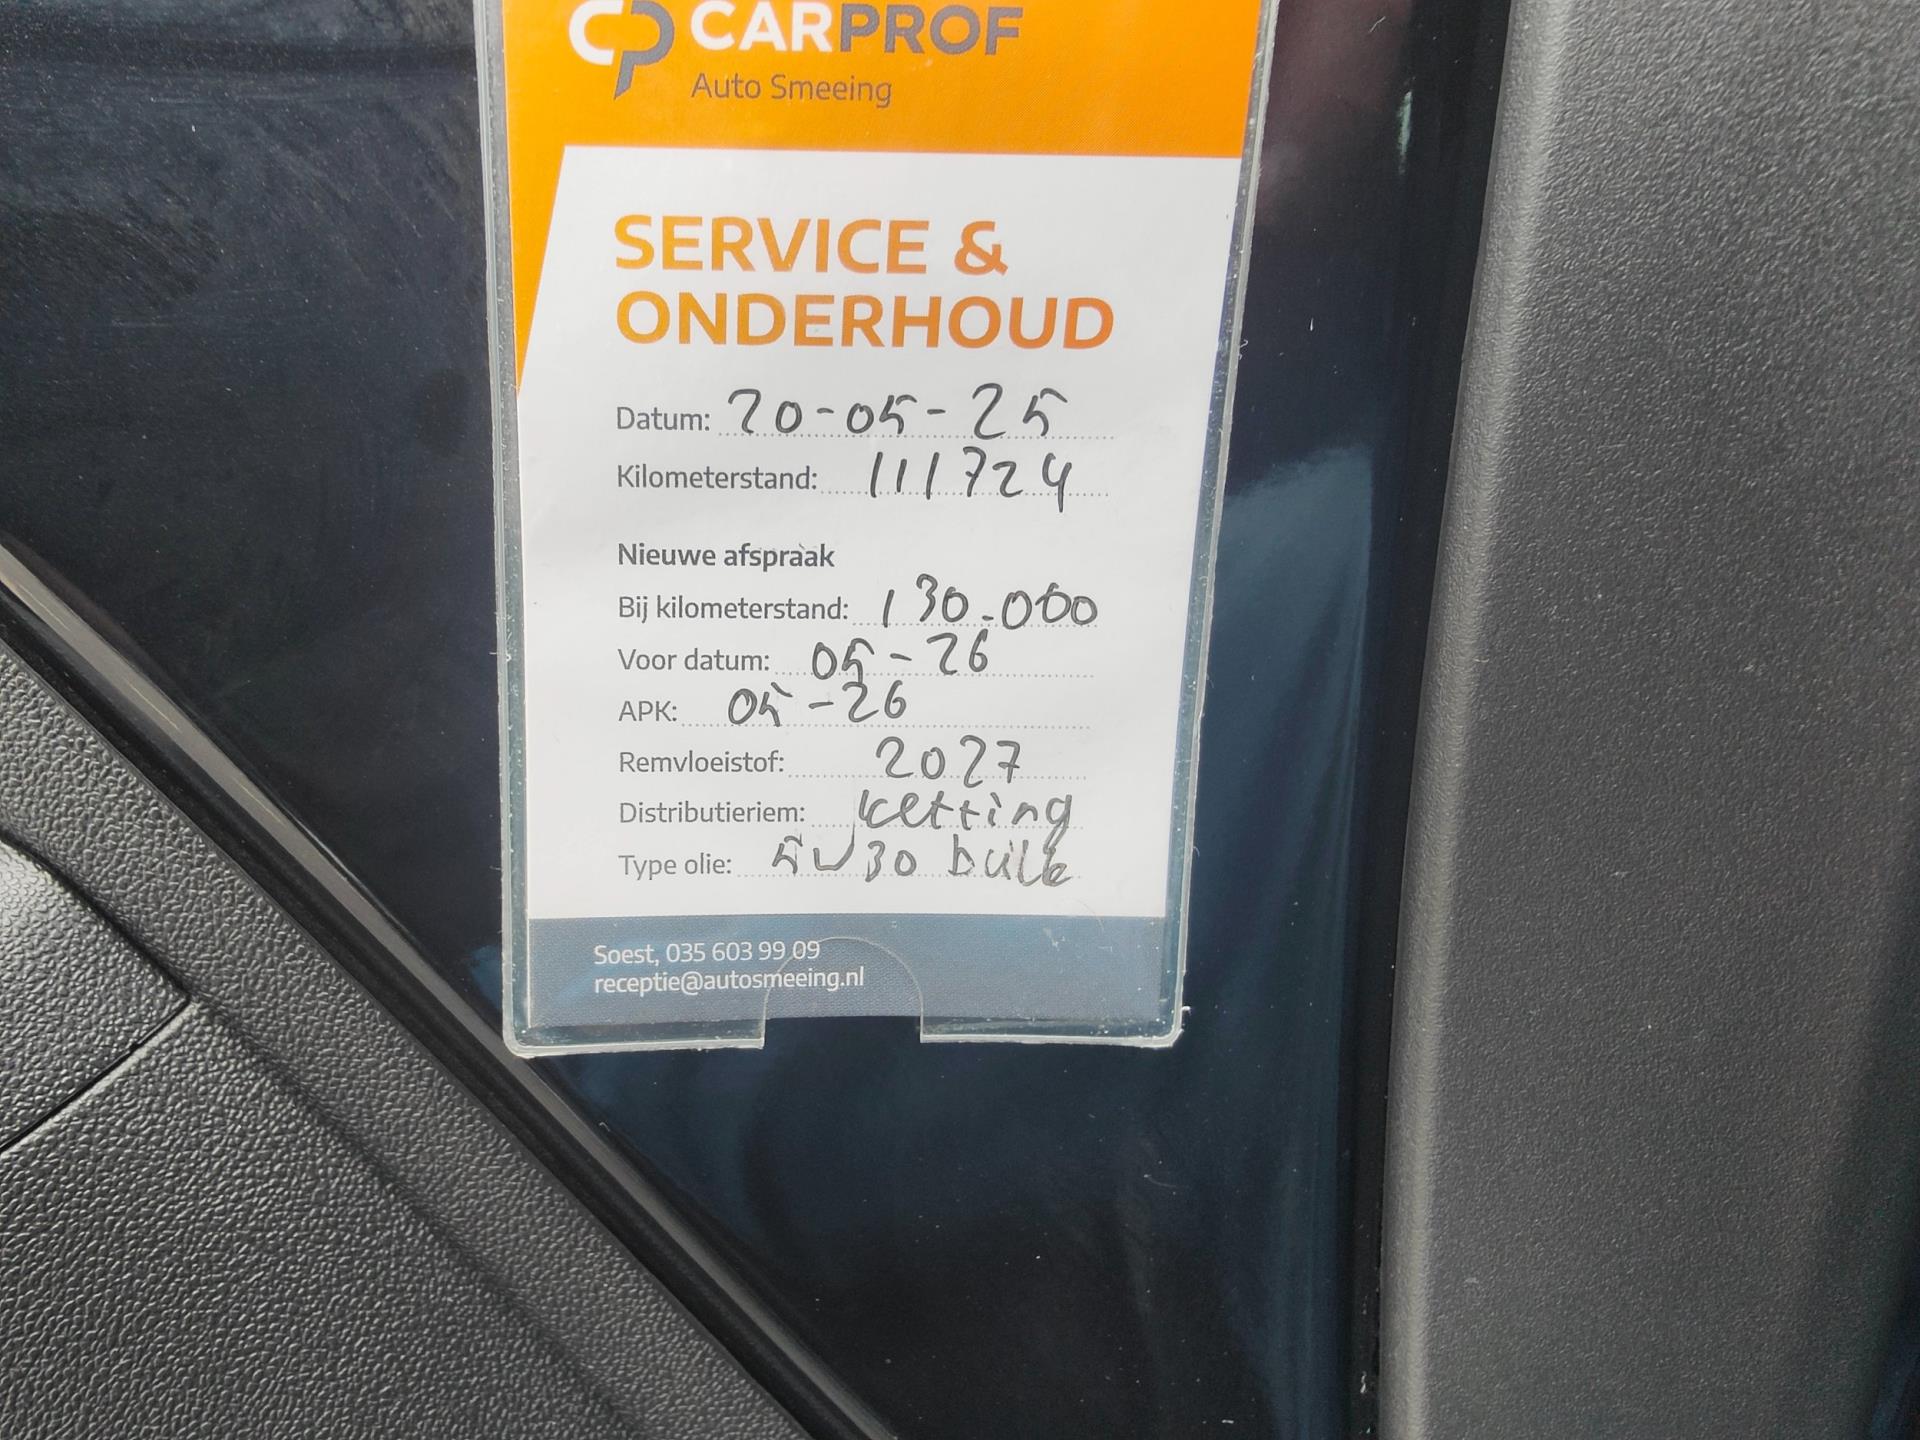 CARPROF
Auto Smeeing
SERVICE &
ONDERHOUD
Datum: 20-05-25
Kilometerstand: 111724
Nieuwe afspraak
Bij kilometerstand: 130.000
Voor datum: 05-26
APK: 05-26
Remvloeistof: 2027
Distributieriem: ketting
Type olie: 5W30 bulk
Soest, 035 603 99 09
receptie@autosmeeing.nl